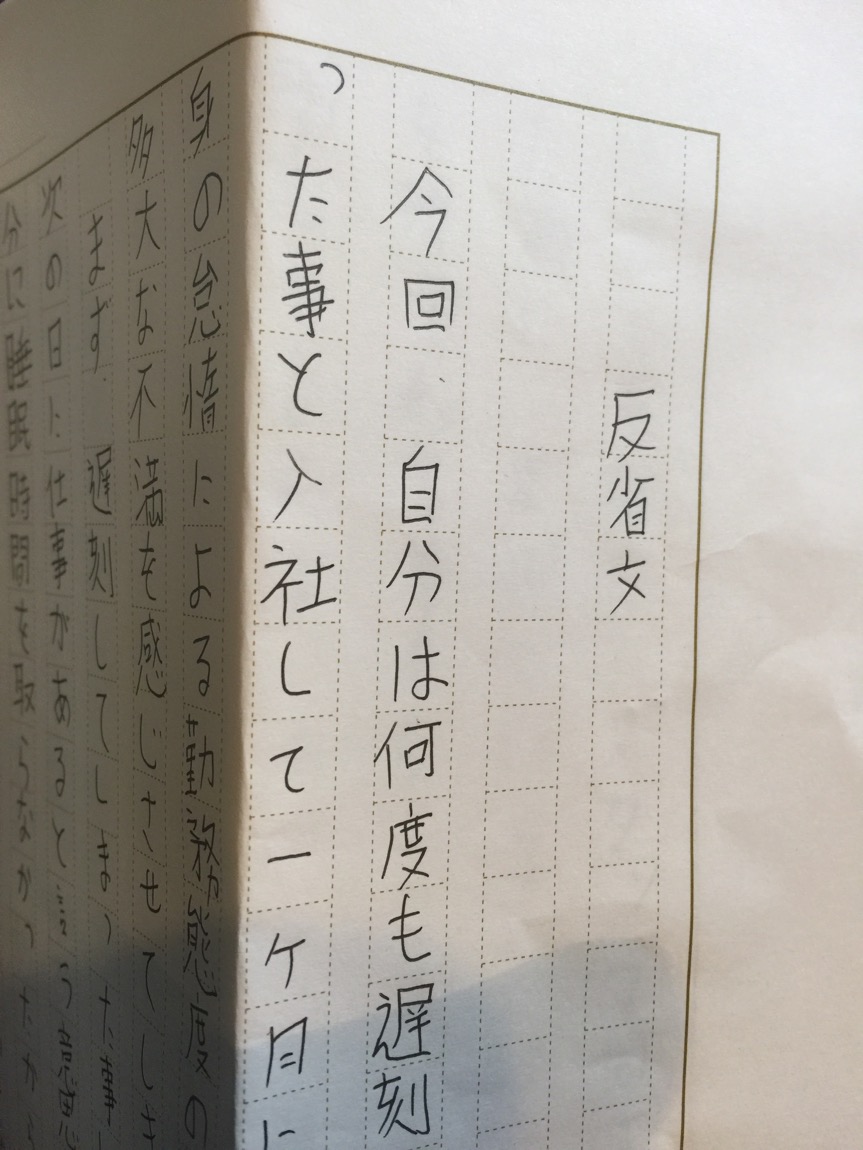 反省文
今回、自分は何度も遅刻
った事と入社して一ケ月に
身の怠惰による勤務態度の
多大な不満を感じさせてしま
まず、遅刻してしまった事
次の日に仕事があると言う意思
分に睡眠時間を取らなかった